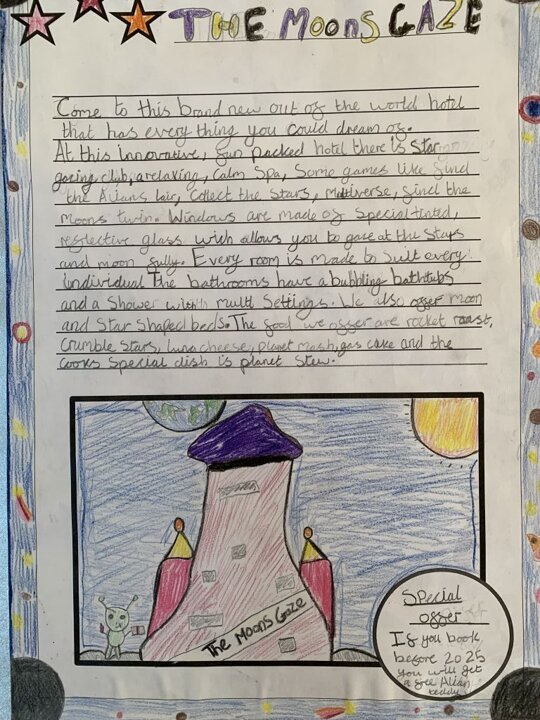 THE MOONS GAZE
Come to this brand new out of the world hotel
that has every thing you could dream of.
At this innovative, fun packed hotel there is star
gazing club, a relaxing, calm Spa, Some games like find
the Alians lair, Collect the Stars, Multiverse, find the
moons twin. Windows are made of special tinted,
reflective glass wich allows you to gaze at the Stars
and moon fully. Every room is made to suit every
individual The bathrooms have a bubbling bathtubs
and a Shower with multi Settings. We also offer moon
and Star Shaped beds. The food we offer are rocket roast,
Crumble Stars, luna cheese, planet mash, gas cake and the
Cooks Special dish is planet Stew.
The Moons Gaze
Special
offer
If you book
before 2025
you will get
a free Alian
teddy